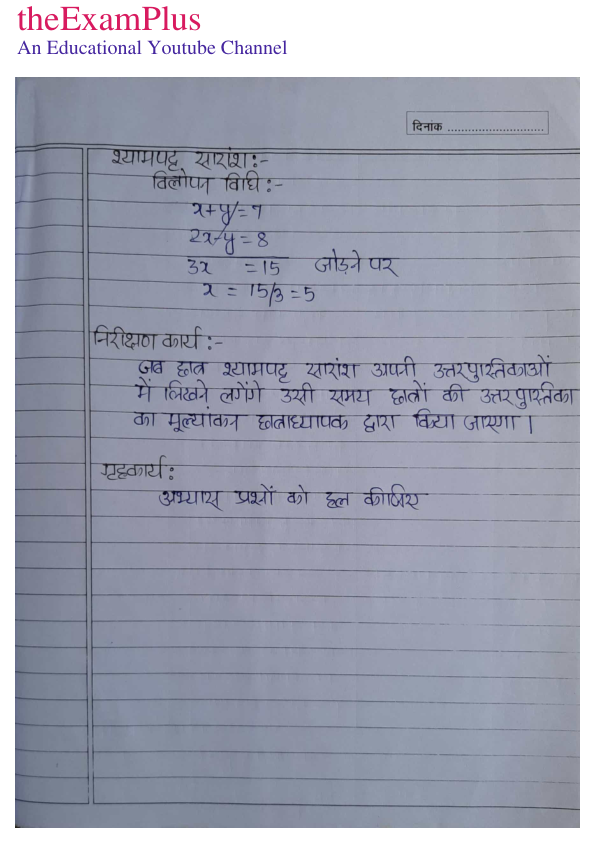 theExamPlus
An Educational Youtube Channel
दिनांक ............................
श्यामपट्ट सारांश:-
विलोपन विधि:-
x+y=7
2x-y=8
3x =15 जोड़ने पर
x = 15/3 =5
निरीक्षण कार्य:-
जब छात्र श्यामपट्ट सारांश अपनी उत्तरपुस्तिकाओं
में लिखने लगेंगे उसी समय छात्रों की उत्तरपुस्तिका
का मूल्यांकन छात्राध्यापक द्वारा किया जाएगा।
गृहकार्य:
अभ्यास प्रश्नों को हल कीजिए